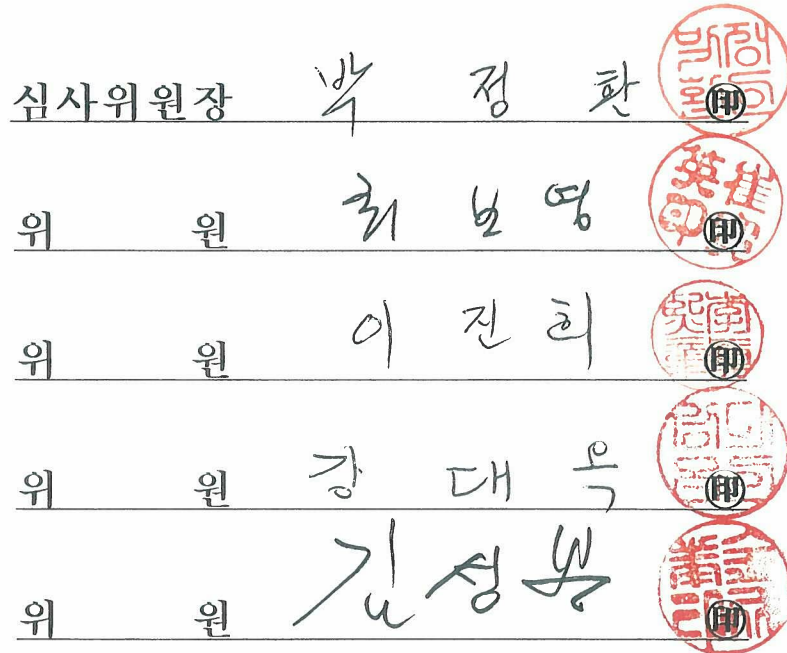 심사위원장 박 정 환 印
위 원 최 보 영 印
위 원 이 진 희 印
위 원 강 대 옥 印
위 원 김 성 봉 印